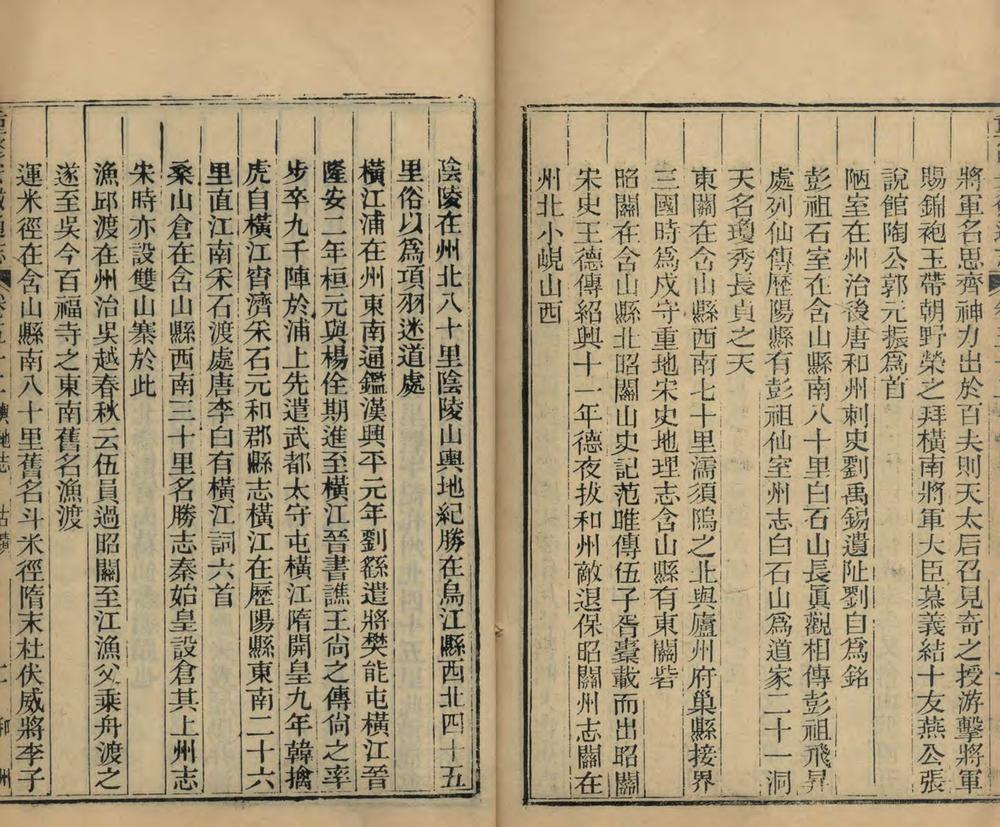 將軍名思齊神力出於百夫則天太后召見奇之授游擊將軍
賜錦袍玉帶朝野榮之拜橫南將軍大臣慕義結十友燕公張
說館陶公郭元振為首
陋室在州治後唐和州刺史劉禹錫遺阯劉自為銘
彭祖石室在含山縣南八十里白石山長眞觀相傳彭祖飛昇
處列仙傳歷陽縣有彭祖仙室州志白石山為道家二十一洞
天名瓊秀長貞之天
東關在含山縣西南七十里濡須隖之北與廬州府巢縣接界
三國時為戍守重地宋史地理志含山縣有東關砦
昭關在含山縣北昭關山史記范睢傳伍子胥橐載而出昭關
宋史王德傳紹興十一年德夜拔和州敵退保昭關州志關在
州北小峴山西
陰陵在州北八十里陰陵山輿地紀勝在烏江縣西北四十五
里俗以為項羽迷道處
橫江浦在州東南通鑑漢興平元年劉繇遣將樊能屯橫江晉
隆安二年桓元與楊佺期進至橫江晉書譙王尙之傳尙之率
步卒九千陣於浦上先遣武都太守屯橫江隋開皇九年韓擒
虎自橫江宵濟采石元和郡縣志橫江在歷陽縣東南二十六
里直江南采石渡處唐李白有橫江詞六首
桑山倉在含山縣西南三十里名勝志秦始皇設倉其上州志
宋時亦設雙山寨於此
漁邱渡在州治吳越春秋云伍員過昭關至江漁父乘舟渡之
遂至吳今百福寺之東南舊名漁渡
運米徑在含山縣南八十里舊名斗米徑隋末杜伏威將李子